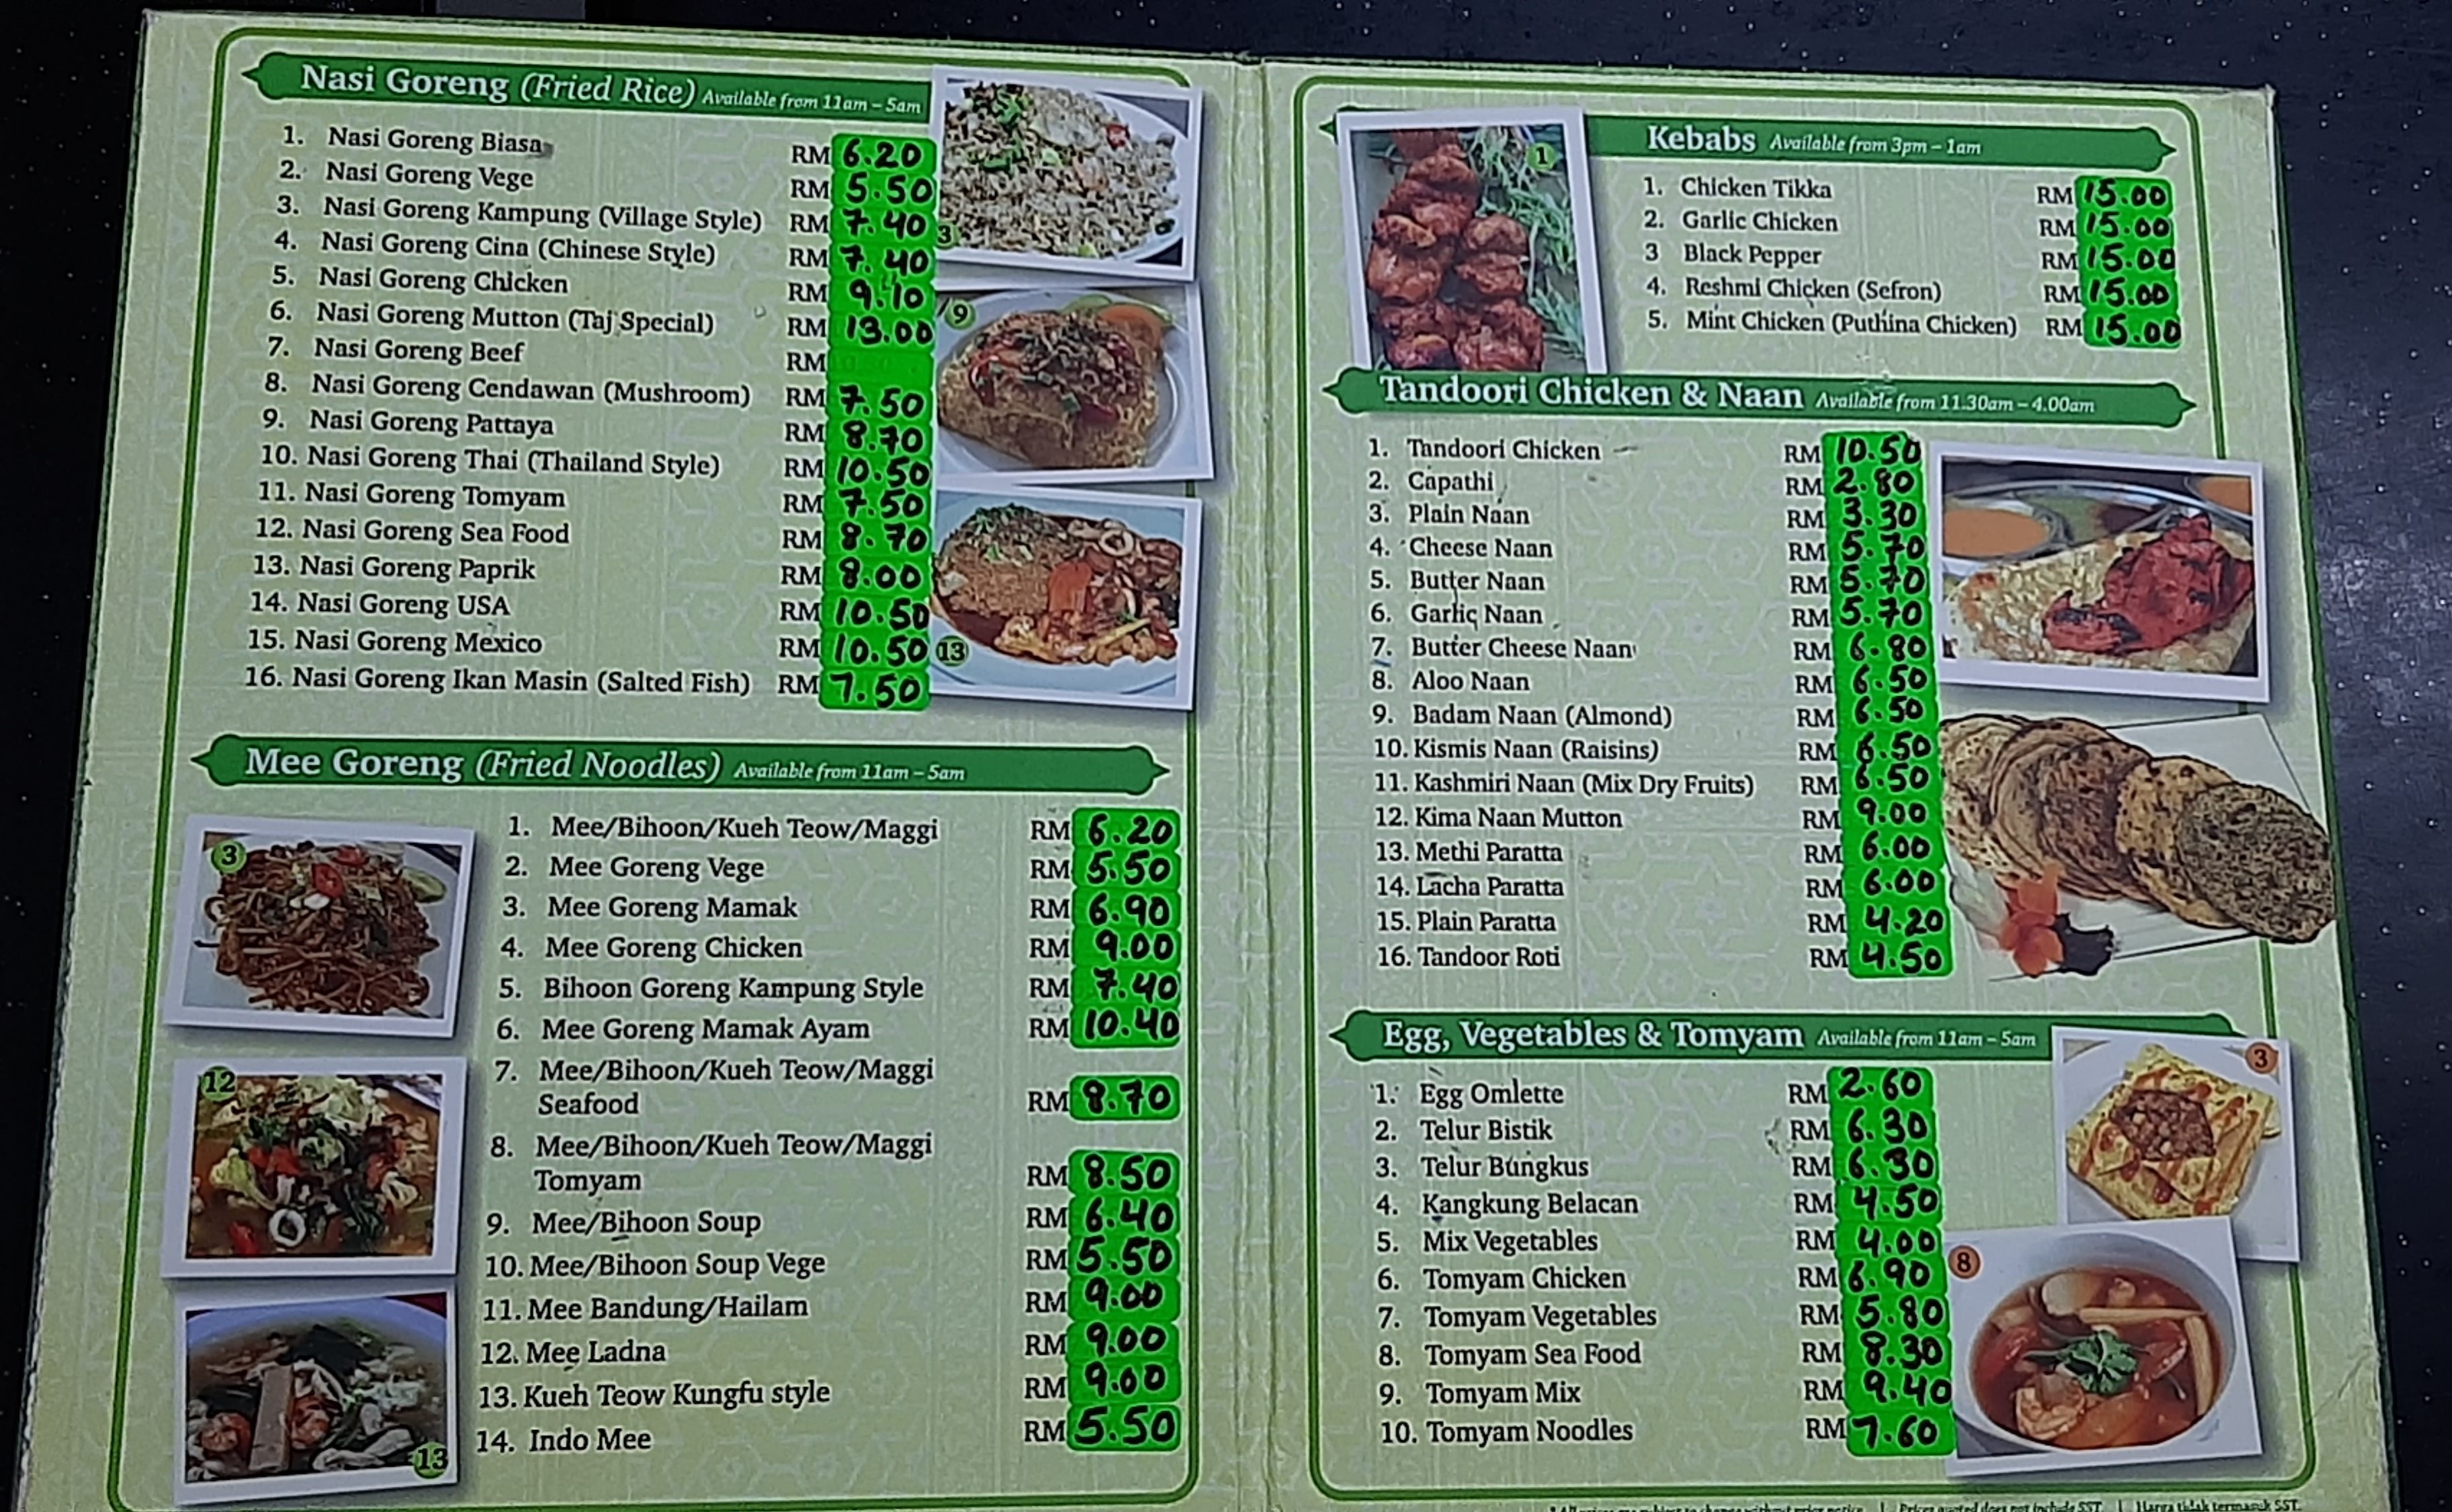 Nasi Goreng (Fried Rice) Available from 11am – 5am
1. Nasi Goreng Biasa RM 6.20
2. Nasi Goreng Vege RM 5.50
3. Nasi Goreng Kampung (Village Style) RM 7.40
4. Nasi Goreng Cina (Chinese Style) RM 7.40
5. Nasi Goreng Chicken RM 9.10
6. Nasi Goreng Mutton (Taj Special) RM 13.00
7. Nasi Goreng Beef RM
8. Nasi Goreng Cendawan (Mushroom) RM 7.50
9. Nasi Goreng Pattaya RM 8.70
10. Nasi Goreng Thai (Thailand Style) RM 10.50
11. Nasi Goreng Tomyam RM 7.50
12. Nasi Goreng Sea Food RM 8.70
13. Nasi Goreng Paprik RM 8.00
14. Nasi Goreng USA RM 10.50
15. Nasi Goreng Mexico RM 10.50
16. Nasi Goreng Ikan Masin (Salted Fish) RM 7.50
3
9
13
Mee Goreng (Fried Noodles) Available from 11am – 5am
1. Mee/Bihoon/Kueh Teow/Maggi RM 6.20
2. Mee Goreng Vege RM 5.50
3. Mee Goreng Mamak RM 6.90
4. Mee Goreng Chicken RM 9.00
5. Bihoon Goreng Kampung Style RM 7.40
6. Mee Goreng Mamak Ayam RM 10.40
7. Mee/Bihoon/Kueh Teow/Maggi
Seafood RM 8.70
8. Mee/Bihoon/Kueh Teow/Maggi
Tomyam RM 8.50
9. Mee/Bihoon Soup RM 6.40
10. Mee/Bihoon Soup Vege RM 5.50
11. Mee Bandung/Hailam RM 9.00
12. Mee Ladna RM 9.00
13. Kueh Teow Kungfu style RM 9.00
14. Indo Mee RM 5.50
3
12
13
Kebabs Available from 3pm – 1am
1
1. Chicken Tikka RM 15.00
2. Garlic Chicken RM 15.00
3 Black Pepper RM 15.00
4. Reshmi Chicken (Sefron) RM 15.00
5. Mint Chicken (Puthina Chicken) RM 15.00
Tandoori Chicken & Naan Available from 11.30am – 4.00am
1. Tandoori Chicken RM 10.50
2. Capathi RM 2.80
3. Plain Naan RM 3.30
4. Cheese Naan RM 5.70
5. Butter Naan RM 5.70
6. Garlic Naan RM 5.70
7. Butter Cheese Naan RM 6.80
8. Aloo Naan RM 6.50
9. Badam Naan (Almond) RM 6.50
10. Kismis Naan (Raisins) RM 6.50
11. Kashmiri Naan (Mix Dry Fruits) RM 6.50
12. Kima Naan Mutton RM 9.00
13. Methi Paratta RM 6.00
14. Lacha Paratta RM 6.00
15. Plain Paratta RM 4.20
16. Tandoor Roti RM 4.50
Egg, Vegetables & Tomyam Available from 11am – 5am
1. Egg Omlette RM 2.60
2. Telur Bistik RM 6.30
3. Telur Bungkus RM 6.30
4. Kangkung Belacan RM 4.50
5. Mix Vegetables RM 4.00
6. Tomyam Chicken RM 6.90
7. Tomyam Vegetables RM 5.80
8. Tomyam Sea Food RM 8.30
9. Tomyam Mix RM 9.40
10. Tomyam Noodles RM 7.60
3
8
* All prices are subject to change without prior notice | Prices quoted does not include SST | Harga tidak termasuk SST